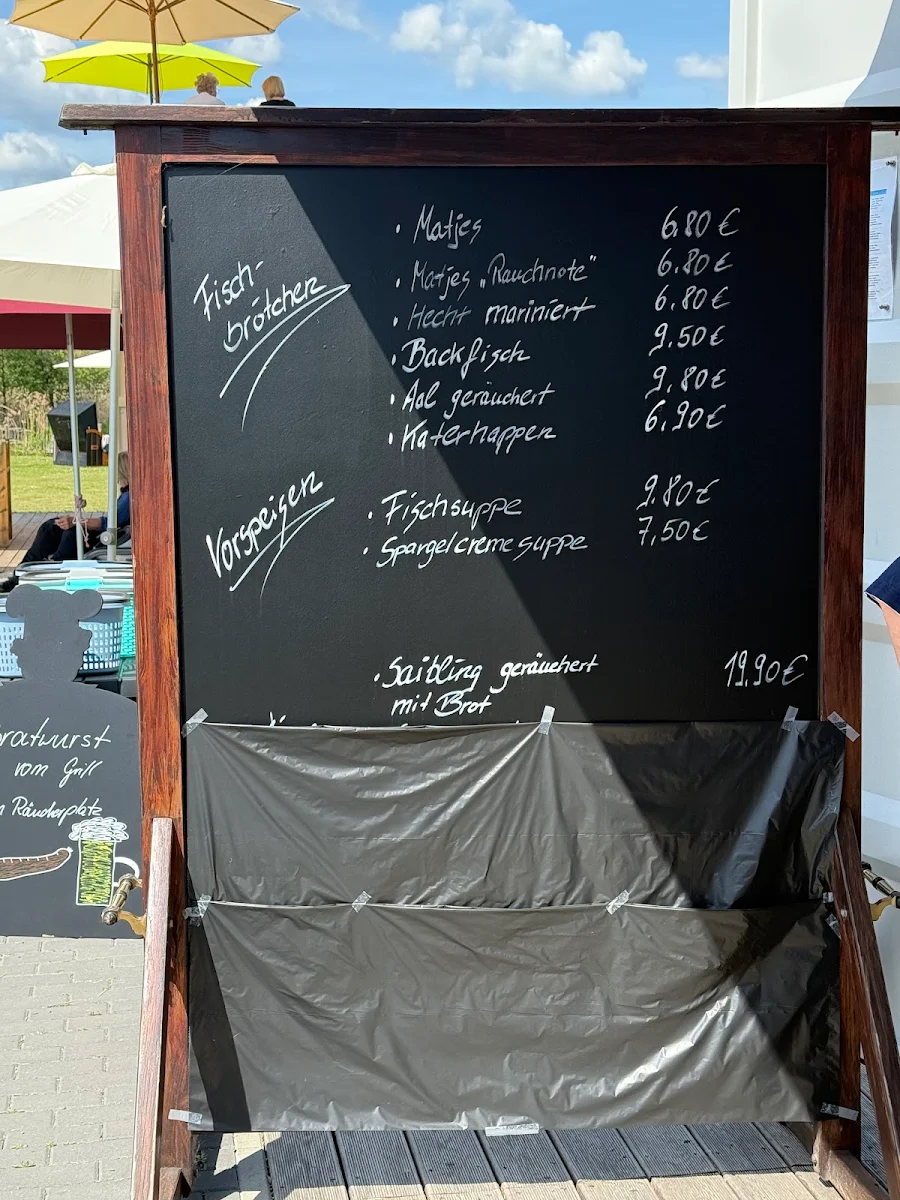 Fisch-
brötchen
· Matjes 6.80 €
· Matjes „Rauchnote" 6.80 €
· Hecht mariniert 6.80 €
· Backfisch 9.50 €
· Aal geräuchert 9.80 €
· Katerhappen 6.90 €
Vorspeisen
· Fischsuppe 9.80 €
· Spargelcremesuppe 7,50 €
· Saibling geräuchert 19.90 €
mit Brot
ratwurst
vom Grill
Räucherplatz